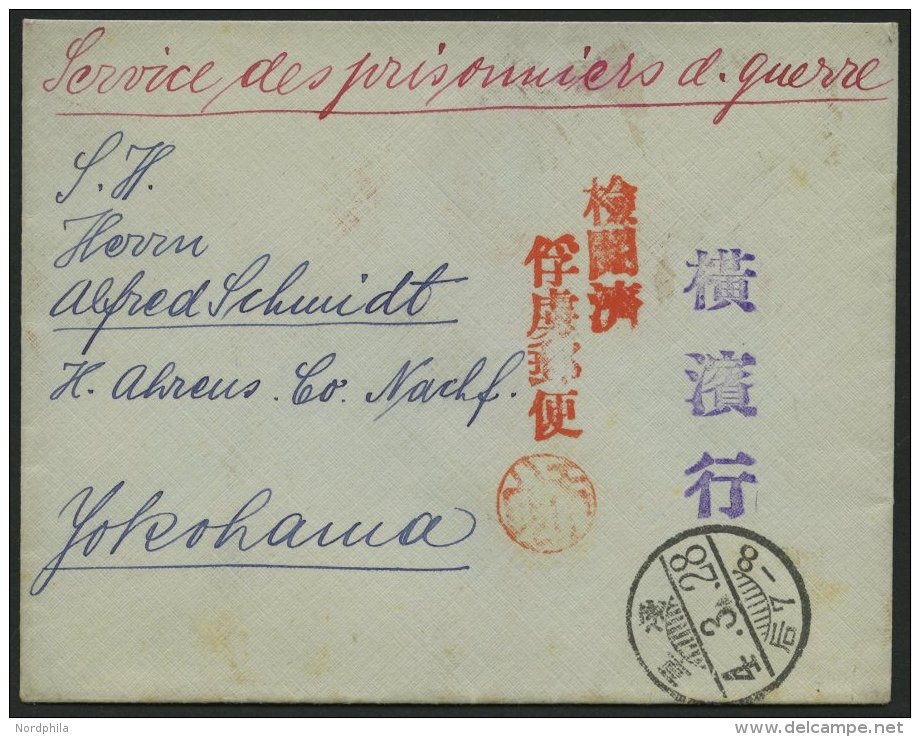 Service des prisonniers d. guerre
S. H.
Herrn
Alfred Schmidt
H. Ahrens. Co. Nachf.
Yokohama
檢閲濟
俘虜郵便
横濱行
4.3.28
后7-8
Nordphila
delcampe.net